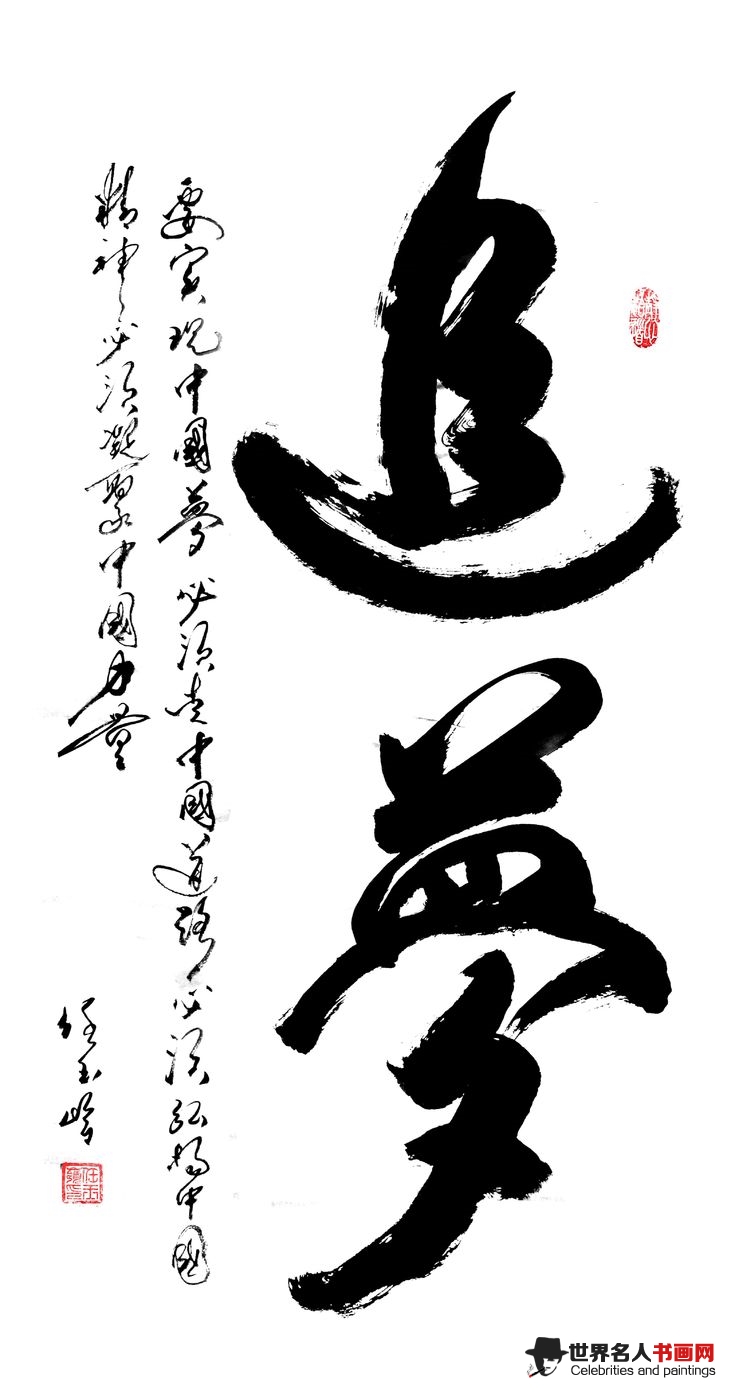 追夢
要实现中國夢必须走中國道路必须弘扬中國
精神必须凝聚中國力量
任玉岭
世界名人书画网
Celebrities and paintings